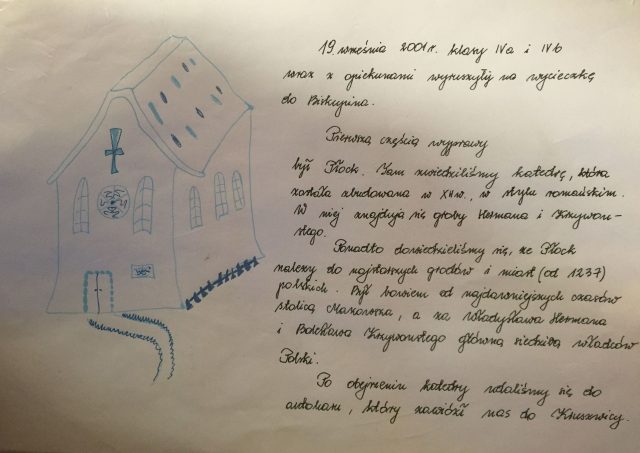 19 września 2001 r. klasy IVa i IVb
wraz z opiekunami wyruszyły na wycieczkę
do Biskupina.
Pierwszą częścią wyprawy
był Płock. Tam zwiedziliśmy katedrę, która
została zbudowana w XII w., w stylu romańskim.
W niej znajdują się groby Hermana i Krzywou-
stego.
Ponadto dowiedzieliśmy się, że Płock
należy do najstarszych grodów i miast (od 1237)
polskich. Był bowiem od najdawniejszych czasów
stolicą Mazowsza, a za Władysława Hermana
i Bolesława Krzywoustego główną siedzibą władców
Polski.
Po obejrzeniu katedry udaliśmy się do
autokaru, który zawiózł nas do Kruszwicy.